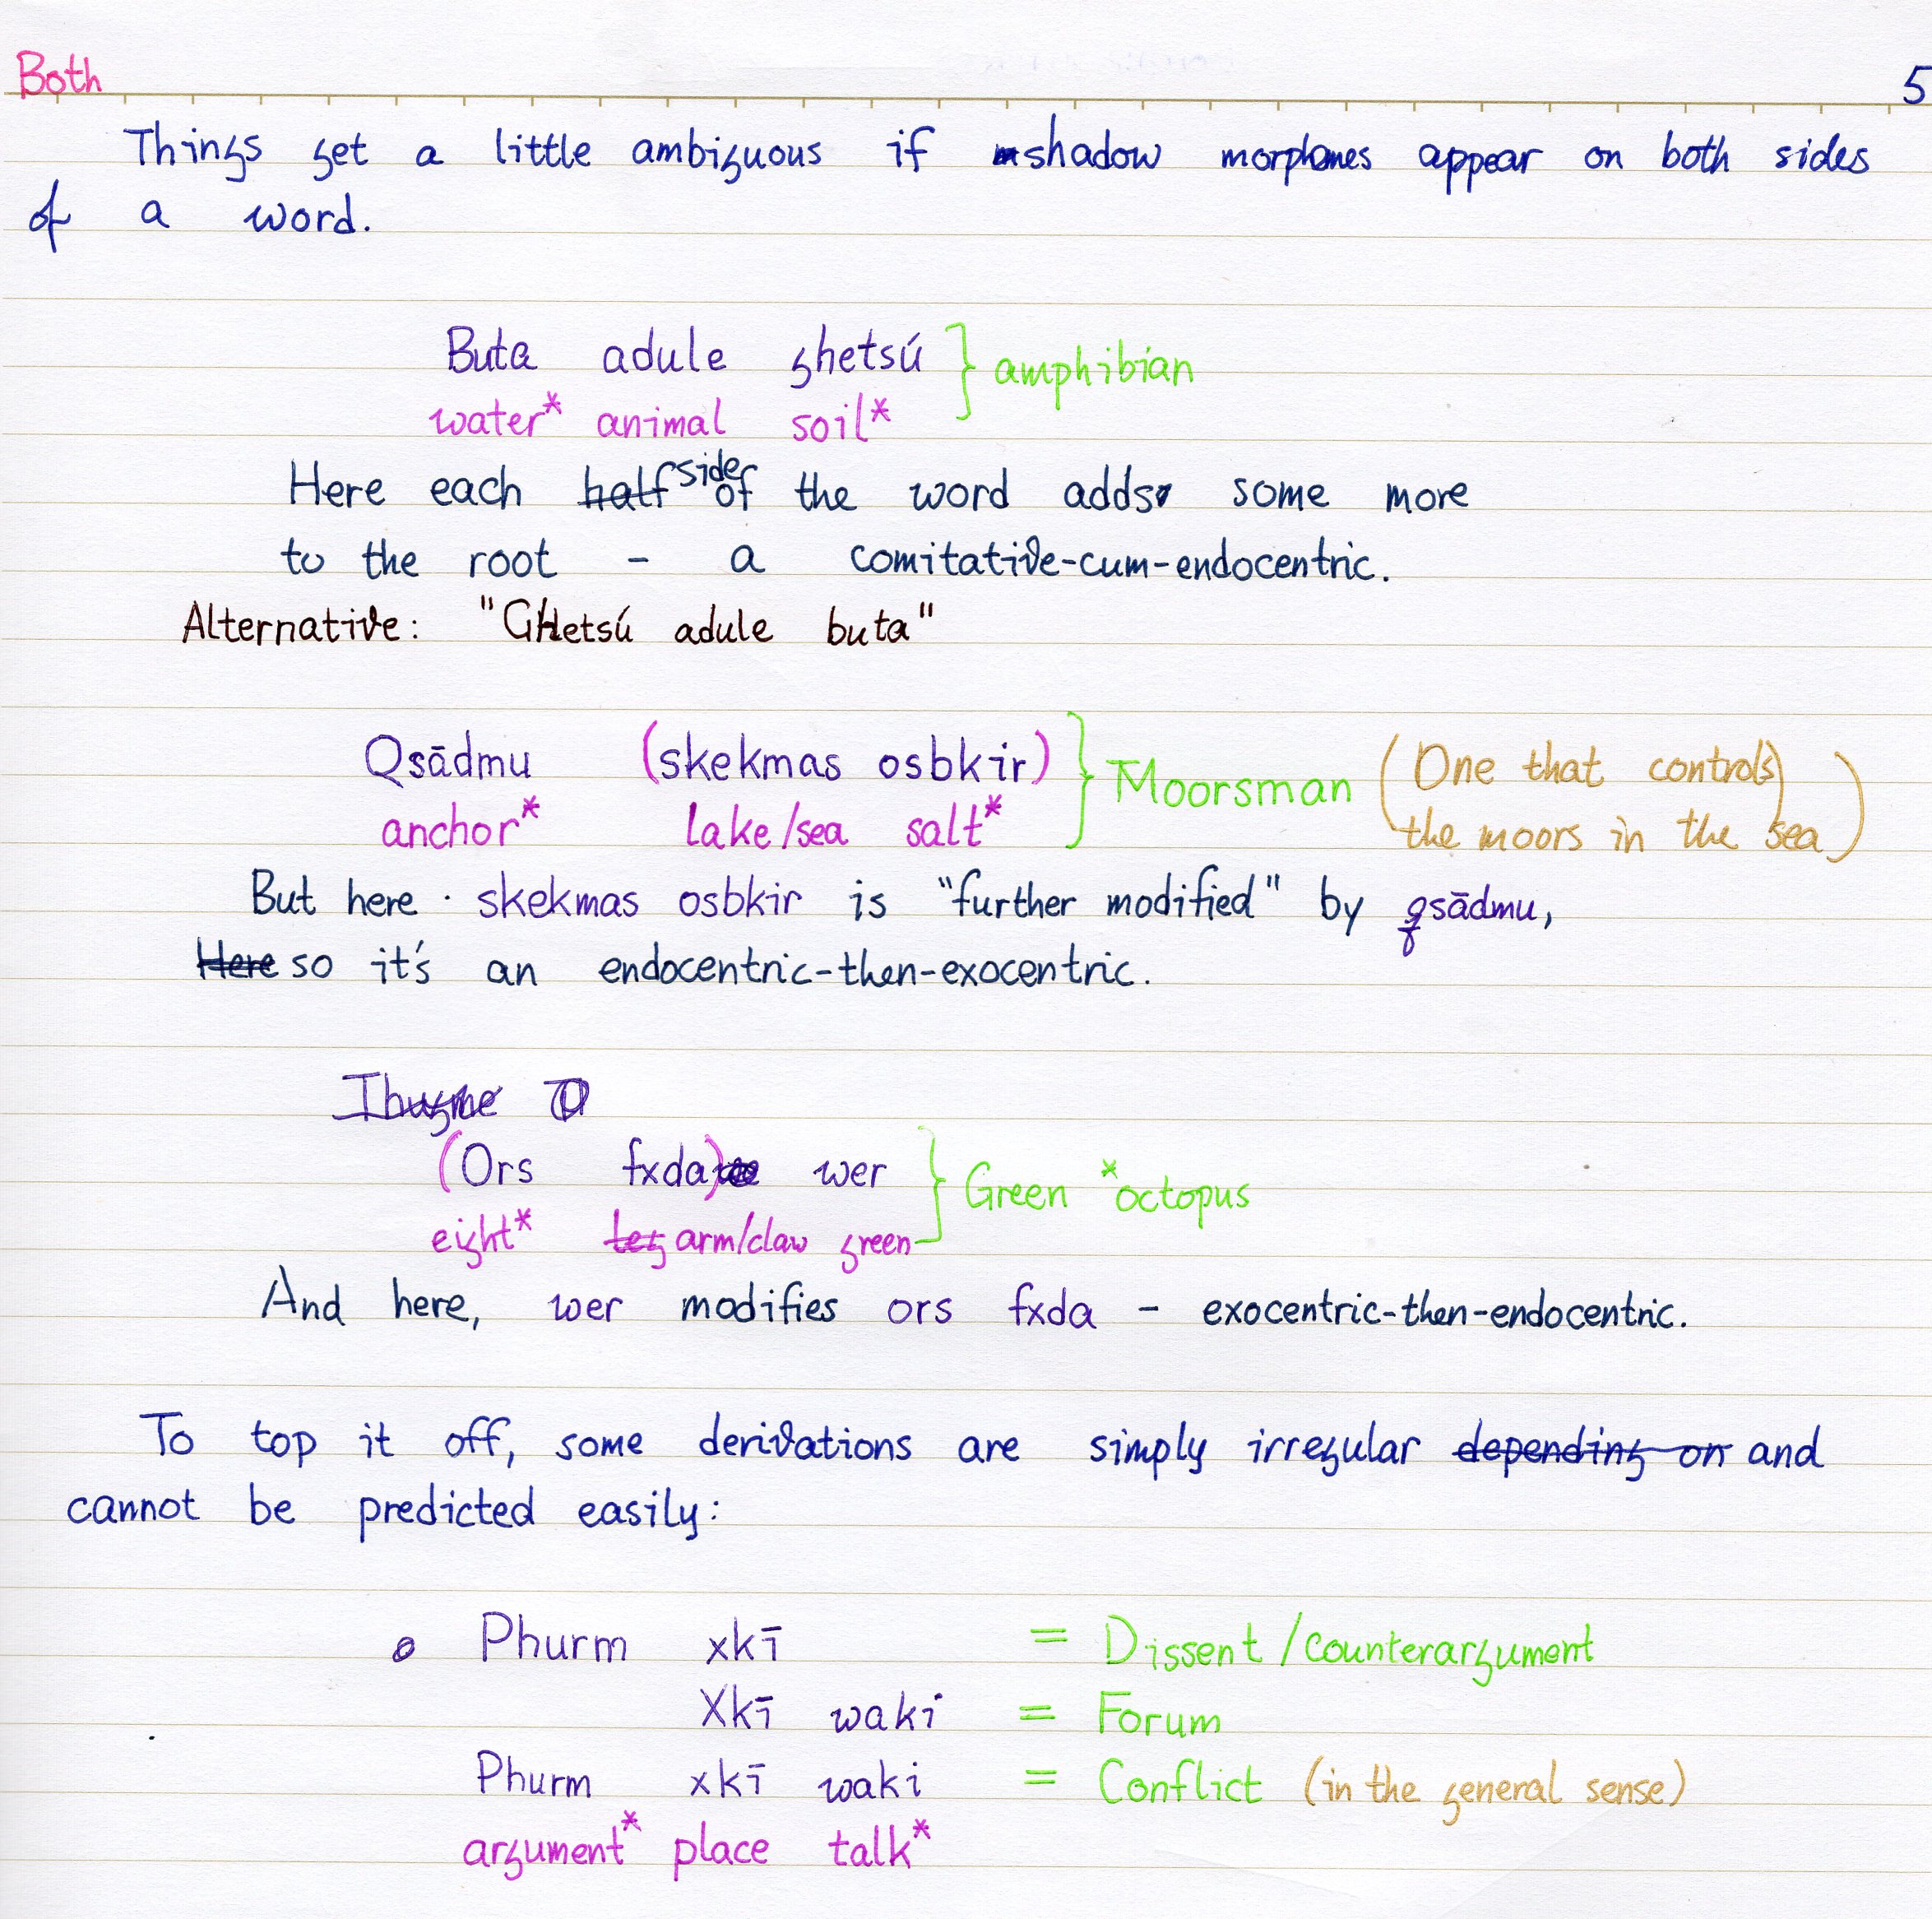 Both 5
Things get a little ambiguous if shadow morphemes appear on both sides
of a word.
Buta adule ghetsú } amphibian
water* animal soil*
Here each half side of the word adds some more
to the root - a comitative-cum-endocentric.
Alternative: "GHetsú adule buta"
Qsādmu (skekmas osbkir) } Moorsman (One that controls
anchor* lake/sea salt* the moors in the sea)
But here skekmas osbkir is "further modified" by qsādmu,
Here so it's an endocentric-then-exocentric.
(Ors fxda) wer } Green *octopus
eight* leg arm/claw green
And here, wer modifies ors fxda - exocentric-then-endocentric.
To top it off, some derivations are simply irregular depending on and
cannot be predicted easily:
Phurm xkī = Dissent/counterargument
Xkī waki = Forum
Phurm xkī waki = Conflict (in the general sense)
argument* place talk*